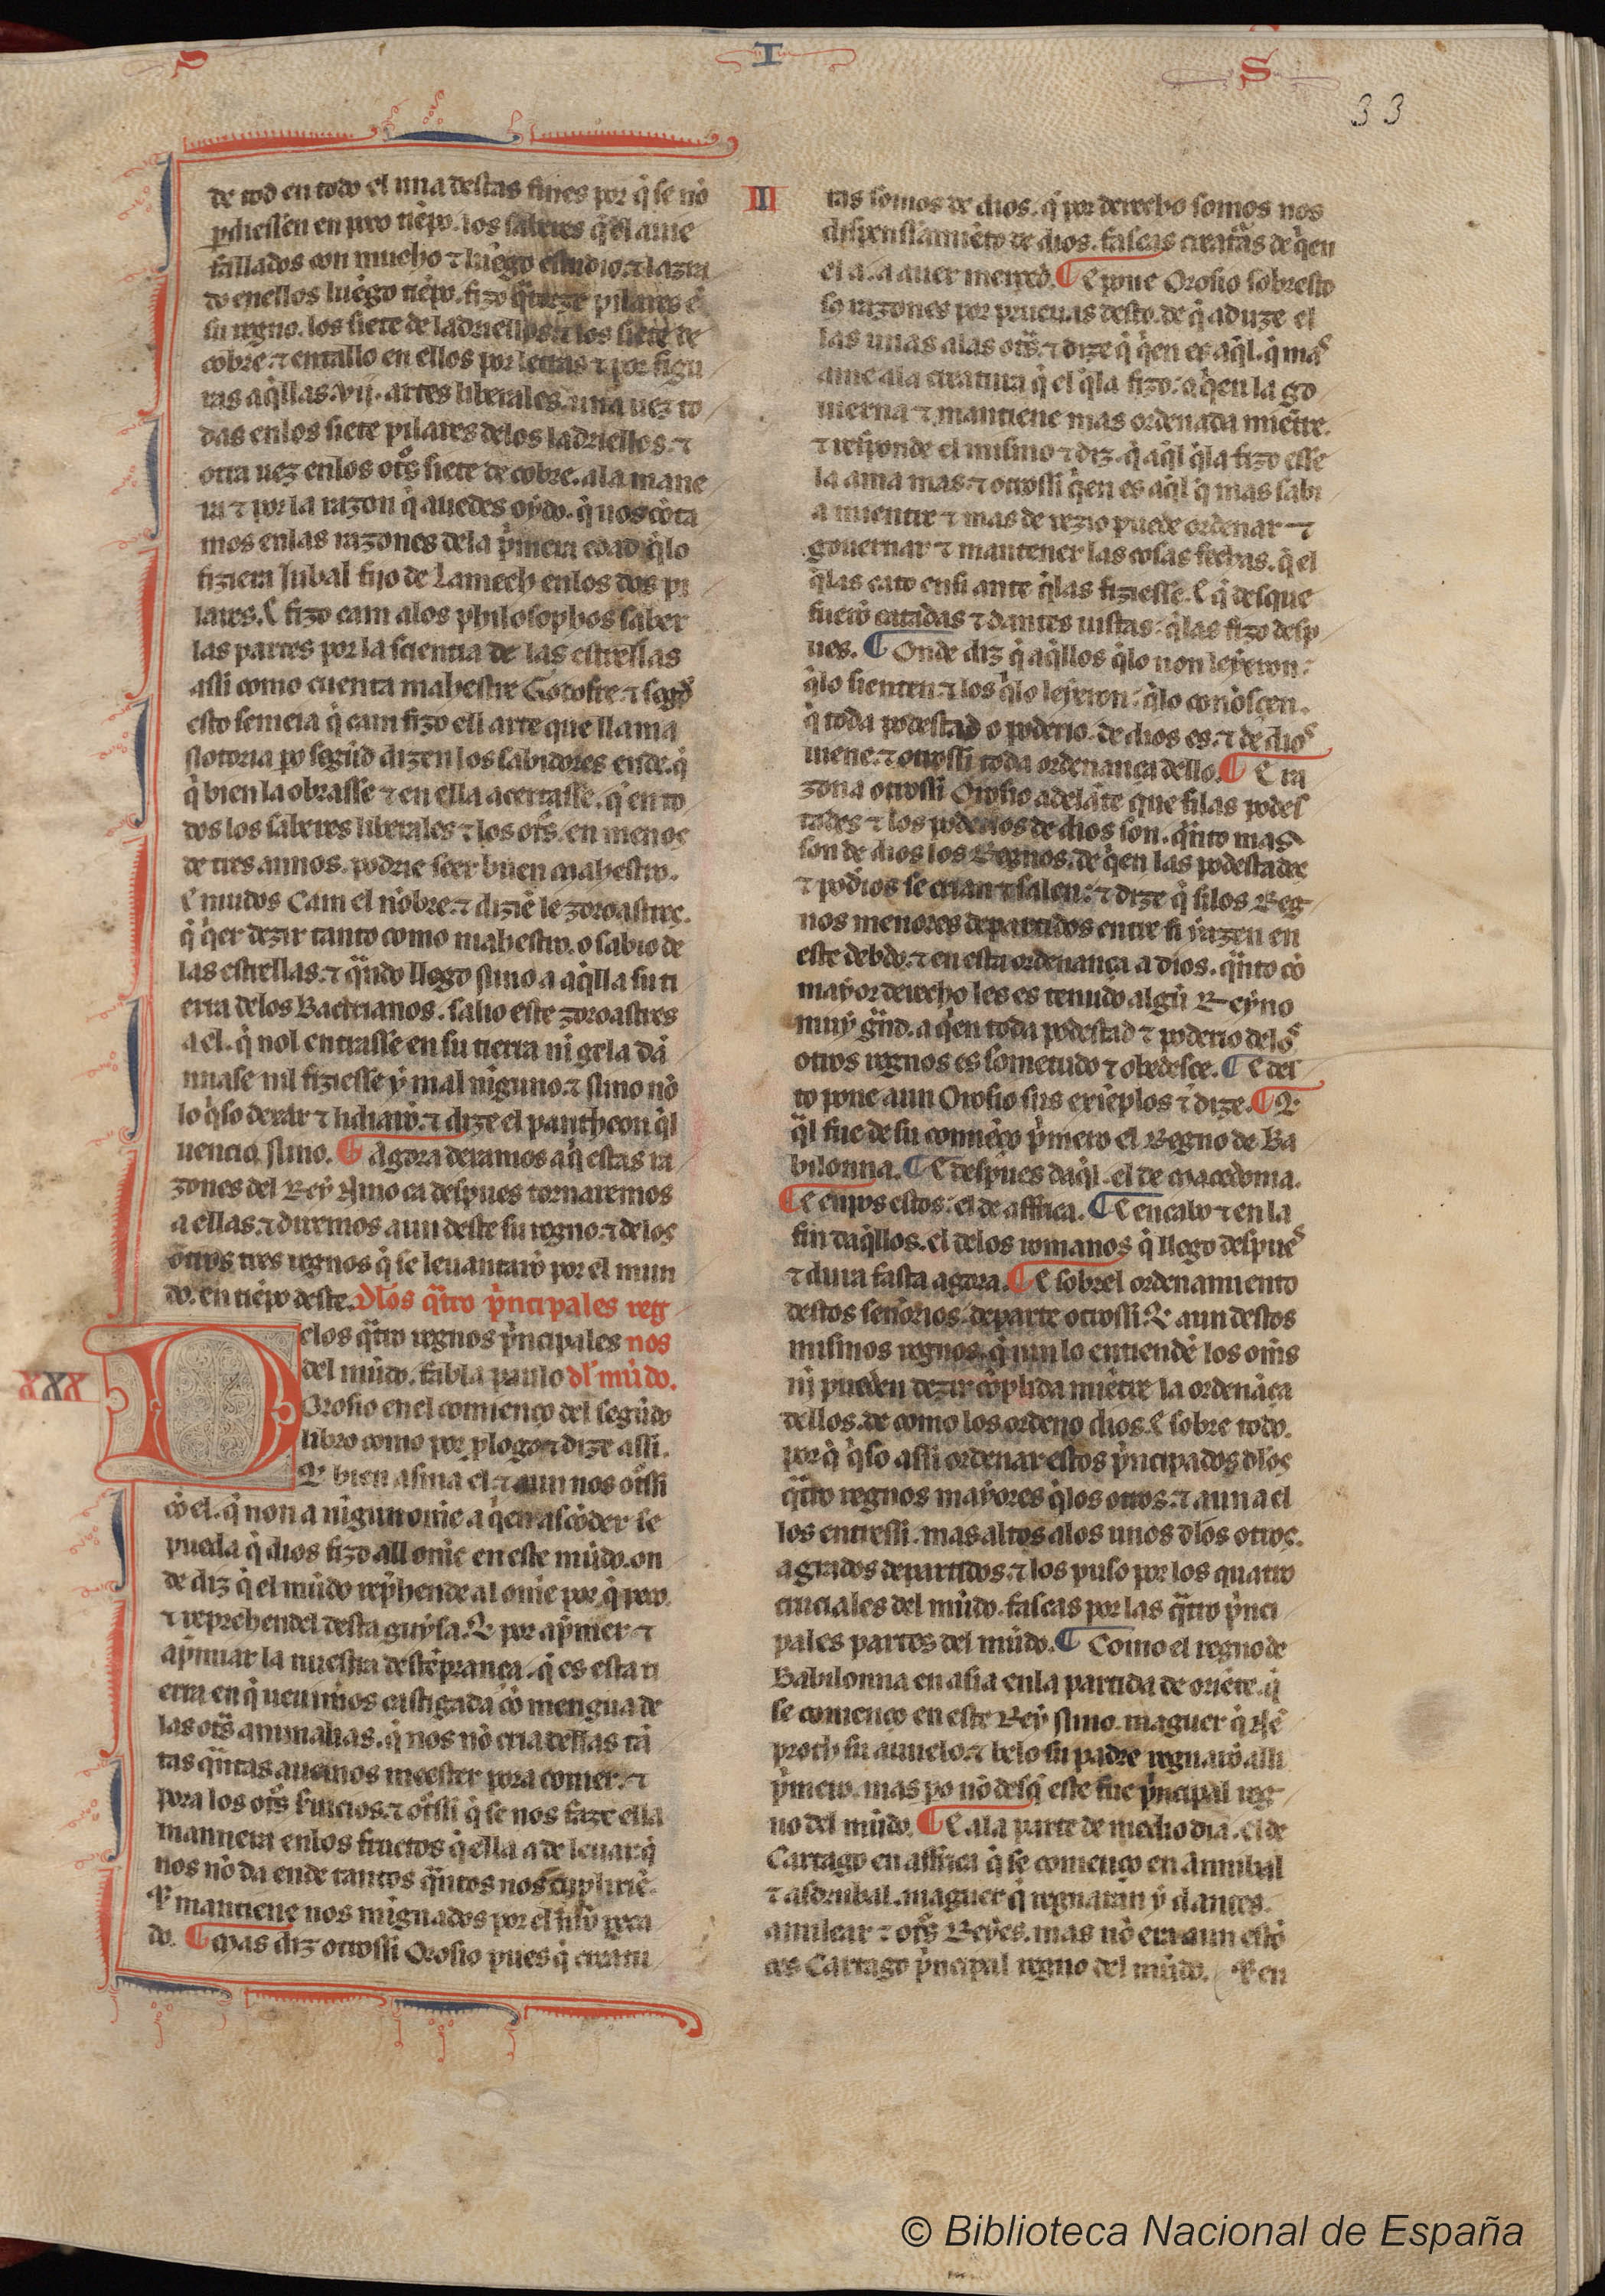 S I S
33
de tod en todo el una destas fines por q̇ se nõ
ꝑdiessen en poco tiẽpo. los saberes q̇ el auie
fallados con mucho ⁊ luego estudio. ⁊ lazra
do en ellos luẽgo tiẽpo. fizo q̈torze pilares ẽ
su regno. los siete de ladriellos ⁊ los siete de
cobre. ⁊ entallo en ellos por letras ⁊ por figu
ras aq̇llas .vij. artes liberales. una uez to
das en los siete pilares de los ladriellos. ⁊
otra uez en los ot̃s siete de cobre. a la mane
ra ⁊ por la razon q̇ auedes oydo. q̇ uos cõta
mos en las razones dela p̃mera edad q̇lo
fiziera Jubal fijo de Lamech en los dos pi
lares. E fizo cam alos philosophos saber
las partes por la sciencia de las estrellas
assi como cuenta mahestre Gotofre. ⁊ segd̃
esto semeia q̇ cam fizo ell arte que llama
notoria po segũd dizen los sabidores ende. q̇
q̇ bien la obrasse ⁊ en ella acertasse. q̇ en to
dos los saberes liberales ⁊ los ot̃s. en menos
de tres annos. podrie seer buen mahestro.
E mudos Cam el nõbre. ⁊ diziẽ le zoroastres.
q̇ q̇er dezir tanto como mahestro. o sabio de
las estrellas. ⁊ q̈ndo llego nino a aq̇lla su ti
erra delos Bactrianos. salio este zoroastres
a el. q̇ nol entrasse en su tierra ni gela dã
nnase nil fiziesse y mal niguno. ⁊ nino nõ
lo q̇so dexar ⁊ lidiarõ. ⁊ dize el pantheon q̇l
uencio nino. ¶ Agora dexamos aq̇ estas ra
zones del Rey Nino ca despues tornaremos
a ellas. ⁊ diremos aun deste su regno. ⁊ delos
otros tres regnos q̇ se leuantarõ por el mun
do. en tiẽpo deste. Dlõs q̈tro p̃ncipales reg
Delos q̈tro regnos p̃ncipales nos
XXX
del mũdo. fabla paulo dl mũdo.
Orosio enel comienço del segũdo
libro como por ꝓlogo ⁊ dize assi.
Et bien asma el. ⁊ aun nos ot̃ssi
cõ el. q̇ non a nigun ome a q̇en ascõder se
pueda q̇ dios fizo all ome en este mũdo. on
de diz q̇ el mũdo rep̃hende al ome por q̇ peco.
⁊ reprehendel desta guysa. Et por ap̃mer ⁊
ap̃miar la nuestra destẽprança. q̇ es esta ti
erra en q̇ ueuimos castigada cõ mengua de
las ot̃s animalias. q̇ nos nõ cria dellas tã
tas q̈ntas auemos meester pora comer. ⁊
pora los ot̃s seruicios. ⁊ ot̃ssi q̇ se nos faze ella
mannera enlos fructos q̇ ella a de leuar q̇
nos nõ da ende tantos q̈ntos nos cũplirie.
Et mantiene nos mignados por el
do. ¶ Mas diz otrossi Orosio pues q̇ creatu
II
ras somos de dios. q̇ por derecho somos nos
dispensamiẽto de dios. fascas creat̃as de q̇en
el a. a auer merced. ¶ E pone Orosio sobresto
so razones por prueuas desto. de q̇ aduze el
las unas alas ot̃s. ⁊ dize q̇ q̇en es aq̇l. q̇ mas
ame ala creatura q̇ el q̇la fizo. o q̇en la go
uierna ⁊ mantiene mas ordenada miẽtre.
⁊ respõnde el mismo ⁊ diz. q̇ aq̇l q̇la fizo esse
la ama mas. ⁊ otrossi q̇en es aq̇l q̇ mas sabi
a mientre ⁊ mas de rezio puede ordenar ⁊
gouernar ⁊ mantener las cosas fechas. q̇ el
q̇las cato en si ante q̇las fiziesse. E q̇ desque
fuerõ catadas ⁊ dantes uistas. q̇las fizo desp
ues. ¶ Onde diz q̇ aq̇llos q̇lo non leyeron.
q̇lo sienten. ⁊ los q̇lo leyeron. q̇lo conoscen.
q̇ toda podestad o poderio. de dios es. ⁊ de dios
uiene. ⁊ otrossi toda ordenança dello. ¶ E ra
zona otrossi Orosio adelãte que si las podes
tades ⁊ los poderios de dios son. q̈nto mas
son de dios los Regnos. de q̇en las podestades
⁊ pod̃ios se crian ⁊ salen. ⁊ dize q̇ si los Reg
nos menores departidos entre si yazen en
este debdo. ⁊ en esta ordenança a dios. q̈nto cõ
mayor derecho les es tenudo algũ Reyno
muy g̈nd. a q̇en toda podestad ⁊ poderio delos
otros regnos es sometudo ⁊ obedesce. ¶ E des
to pone aun Orosio sus exiẽplos ⁊ dize. ¶ Et
q̈l fue de su comiẽço p̃mero el Regno de Ba
bilonna. ¶ E despues daq̇l. el de Macedonia.
¶ E empos estos. el de affrica. ¶ E en cabo ⁊ en la
fin daq̇llos. el delos romanos q̇ llego despues
⁊ dura fasta agora. ¶ E sobrel ordenamiento
destos sennorios. departe otrossi. Et aun destos
mismos regnos. q̇ nin lo entiendẽ los om̃s
ni pueden dezir cõplida miẽtre la ordenãça
dellos. de como los ordeno dios. E sobre todo.
por q̇ q̇so assi ordenar estos p̃ncipados dlõs
q̈tro regnos mayores q̇los otros. ⁊ aun a el
los entressi. mas altos alos unos dlõs otros.
a grados departidos. ⁊ los puso por los quatro
cruciales del mũdo. fascas por las q̈tro p̃nci
pales partes del mũdo. ¶ Como el regno de
Babilonna en asia enla partida de oriẽte. q̇
se començo en este Rey nino. maguer q̇ Nẽ
proth su auuelo. ⁊ belo su padre regnarõ alli
p̃mero. mas po nõ desq̇ este fue p̃ncipal reg
no del mũdo. ¶ E ala parte de medio dia. el de
Cartago en affrica q̇ se començo en Annibal
⁊ asdrubal. maguer q̇ regnaran y dantes.
amilcar ⁊ ot̃s Reyes. mas nõ era aun estõ
ces Cartago p̃ncipal regno del mũdo. Et en
© Biblioteca Nacional de España